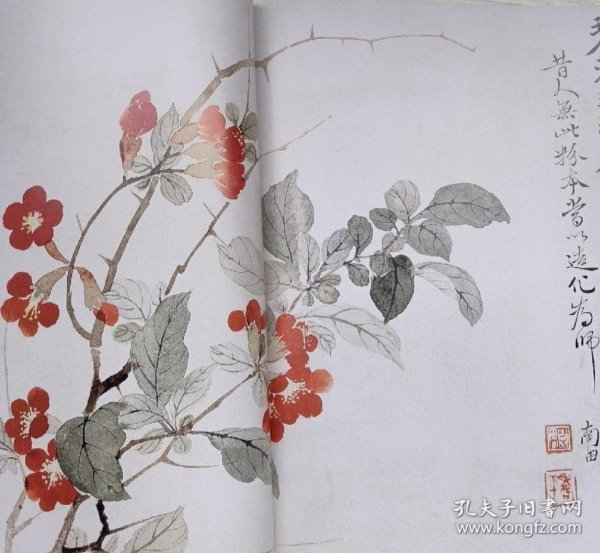 昔人無此粉本當以造化為師
南田
孔夫子旧书网
www.kongfz.com